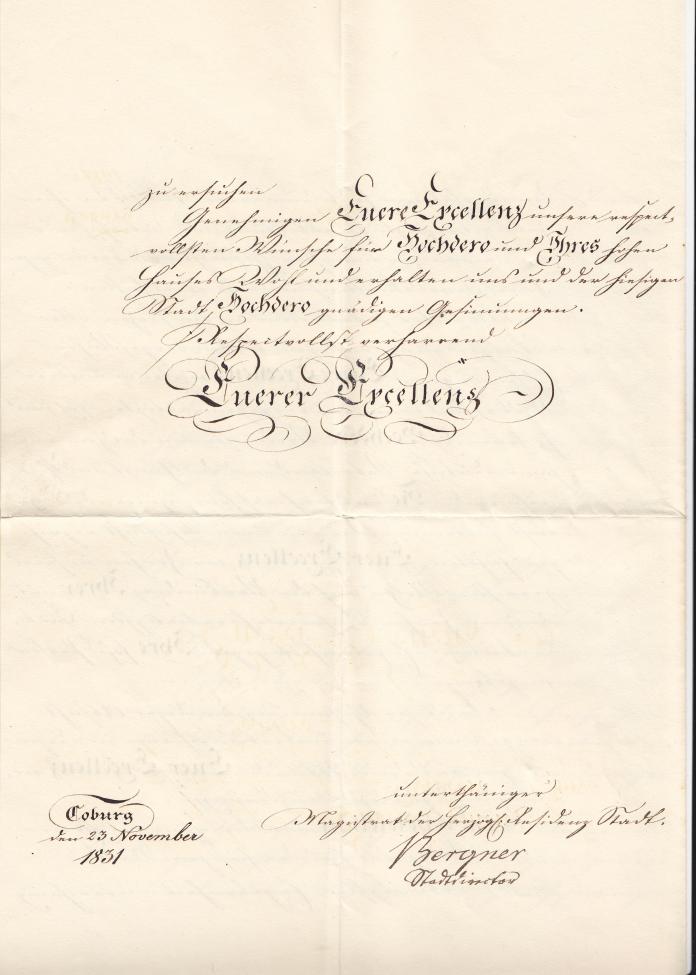 zu ersuchen
Genehmigen Euere Excellenz unsere respect-
vollsten Wünsche für Hochdero und Ihres hohen
Hauses Wohl und erhalten uns und der hiesigen
Stadt, Hochdero gnädigen Gesinnungen.
Respectvollst verharrend
Euerer Excellenz
unterthäniger
Magistrat der herzogl. Residenz Stadt.
Bergner
Stadtdirector
Coburg
den 23 November
1831